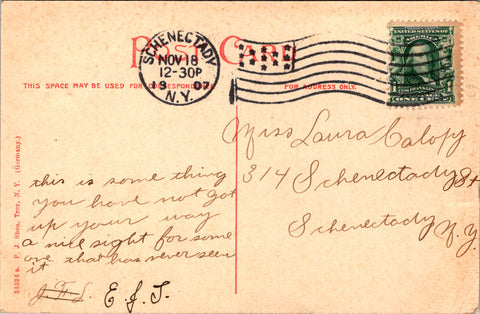 POST CARD
SCHENECTADY
NOV 18
12-30P
07
N.Y.
UNITED STATES OF AMERICA
ONE CENT
THIS SPACE MAY BE USED FOR CORRESPONDENCE
FOR ADDRESS ONLY.
Miss Laura Calopy
314 Schenectady St
Schenectady
N.Y.
this is some thing
you have not got
up your way
a nice sight for some
one that has never seen
it
E. J. T.
54524 a. P. J. Shea, Troy, N. Y. (Germany.)